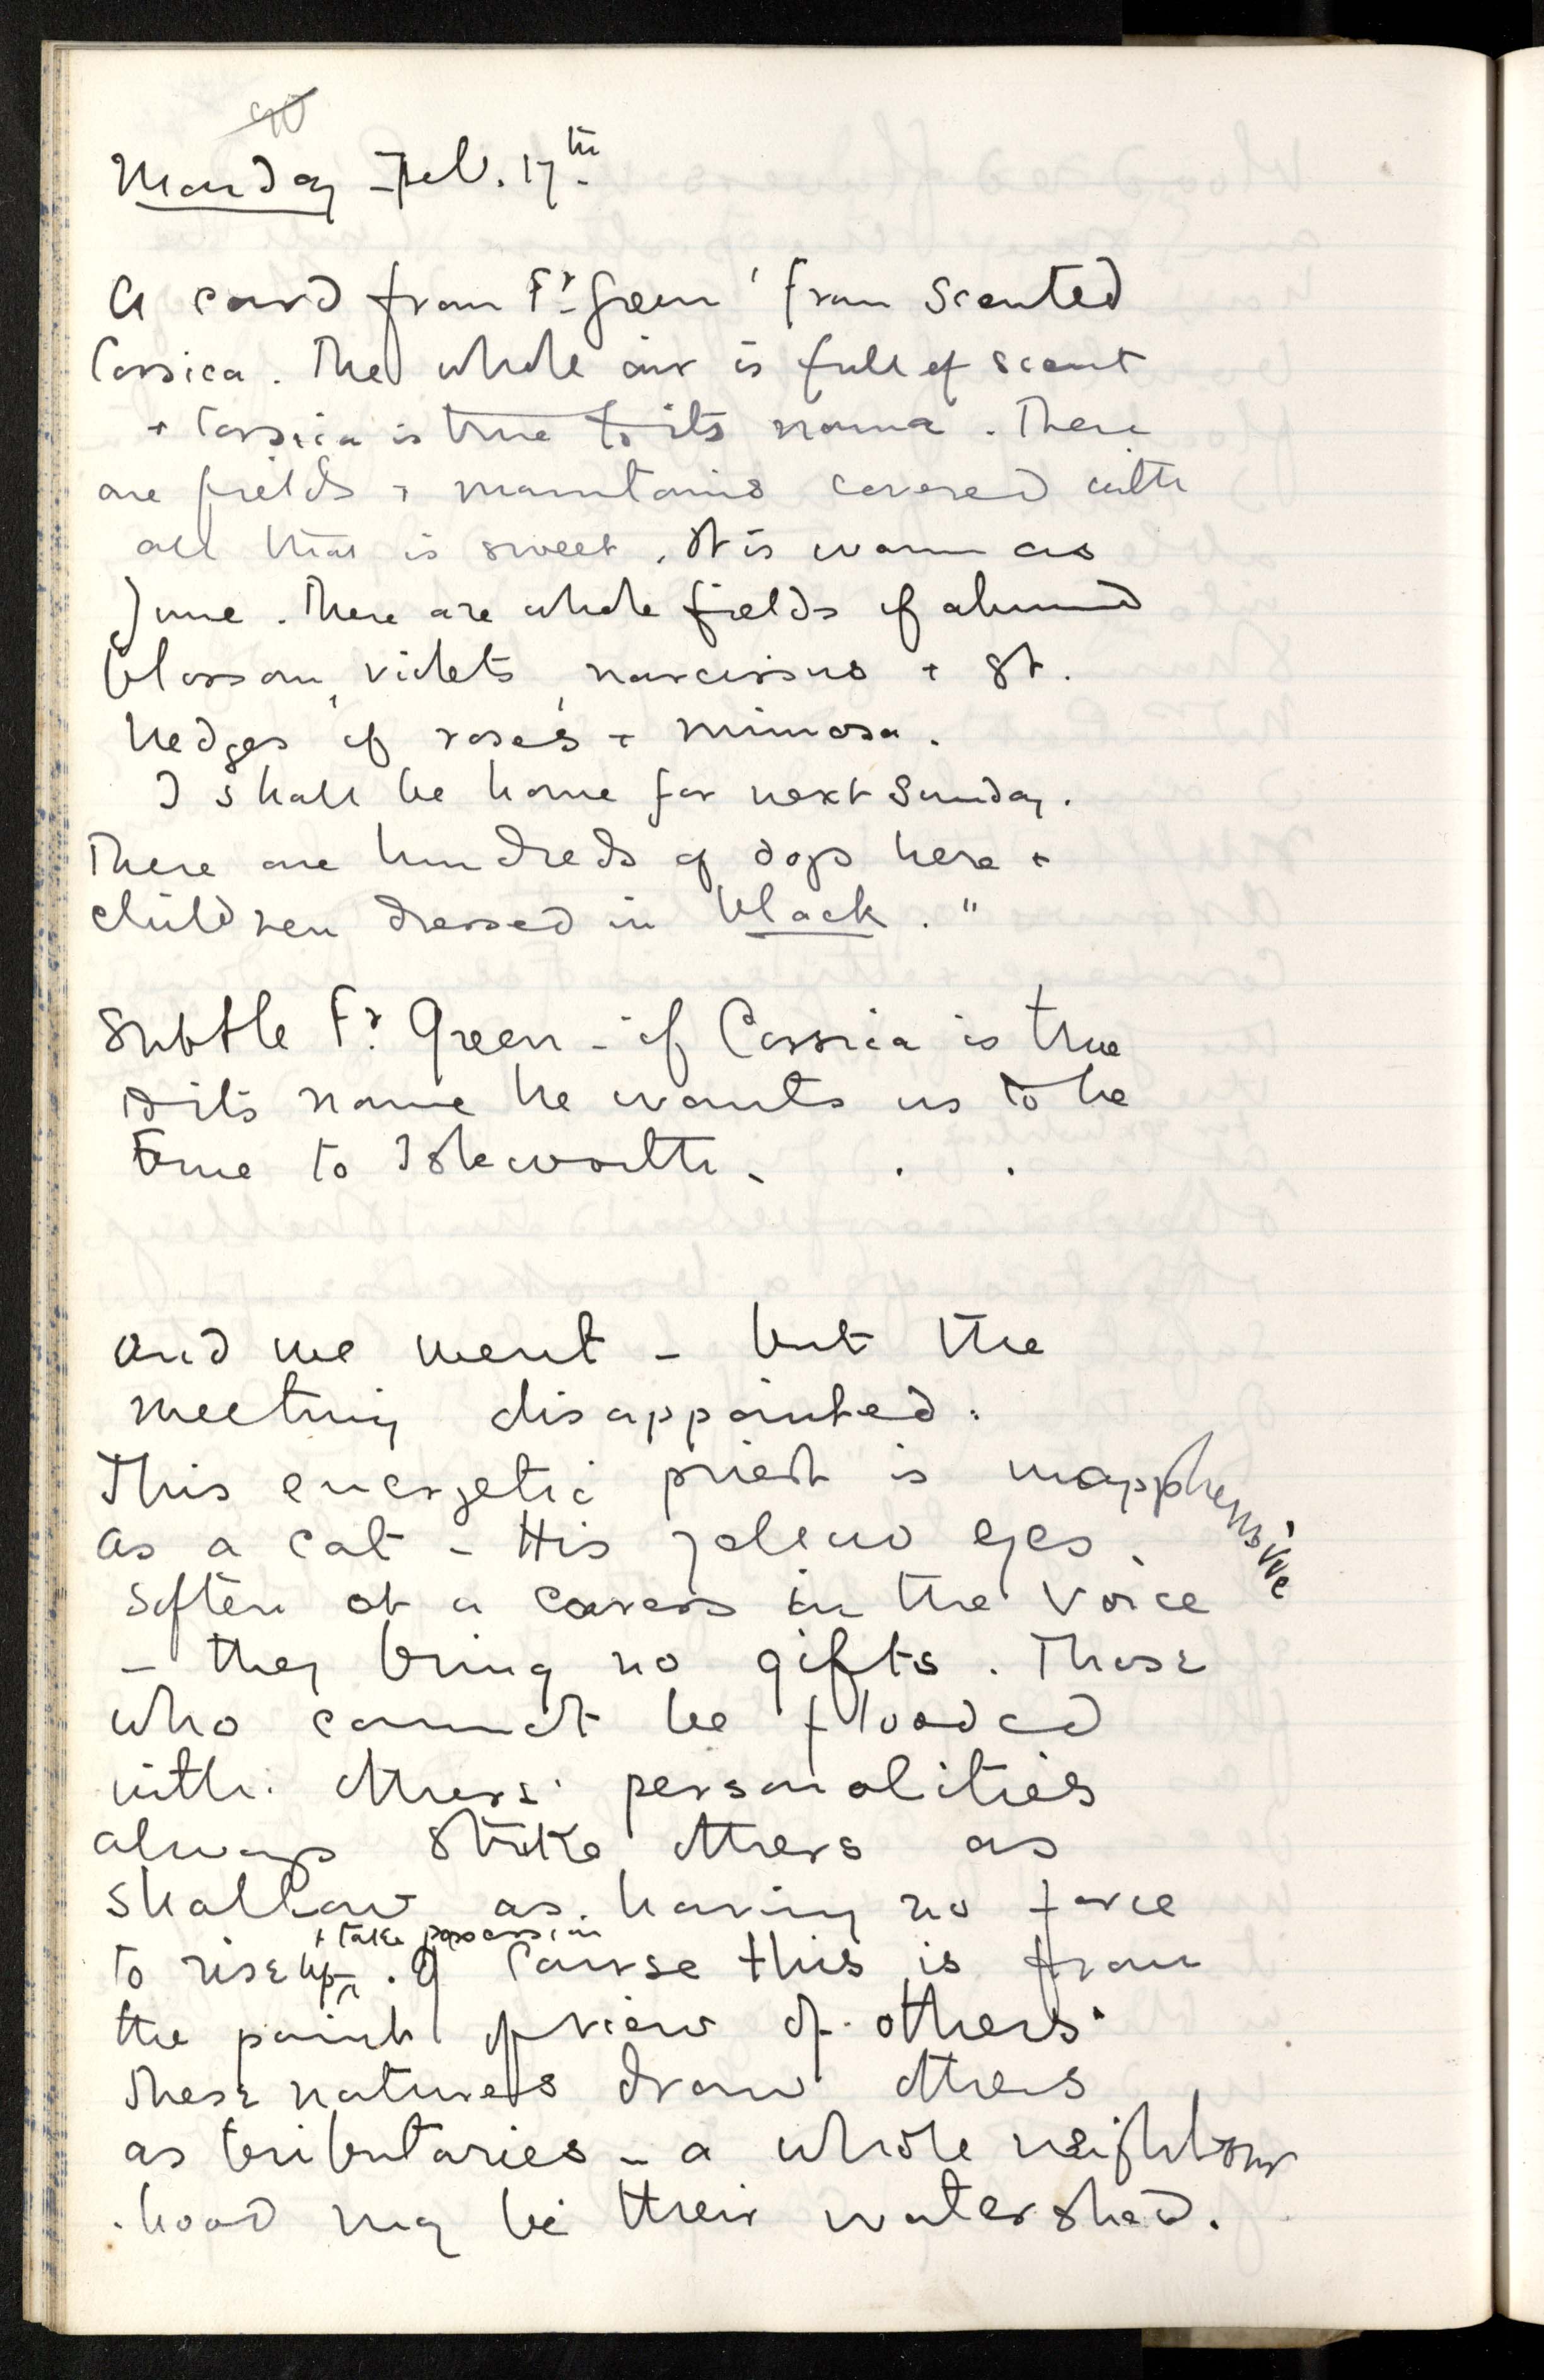 Monday Feb. 17th
A card from Fr Green 'from scented
Corsica. The whole air is full of scent
+ Corsica is true to its name. There
are fields + mountains covered with
all that is sweet. It is warm as
June. There are whole fields of almond
blossom, violets, narcissus + gt.
hedges of roses + mimosa.
I shall be home for next Sunday.
There are hundreds of dogs here +
children dressed in black."
Subtle Fr. Green - if Corsica is true
to its name he wants us to be
true to Isleworth. . .
And we went - but the
meeting disappointed.
This energetic priest is inapprehensive
as a cat - His yellow eyes
soften at a caress in the voice
- they bring no gifts. Those
who cannot be flooded
with others' personalities
always strike others as
shallow as having no force
to rise up + take possession. Of course this is from
the point of view of others.
These natures draw others
as tributaries - a whole neighbour
-hood may be their watershed.